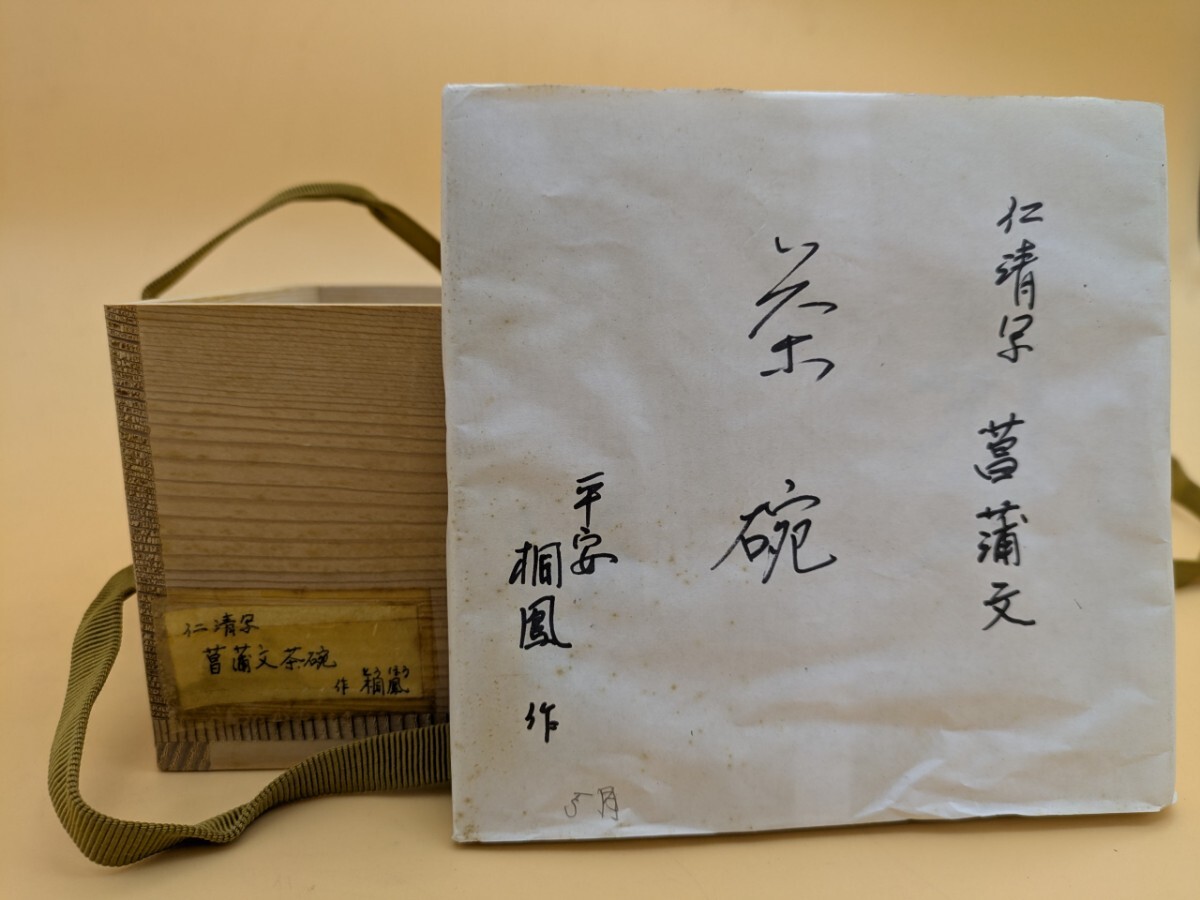 仁清写 菖蒲文
茶碗
平安
桐鳳 作
5月
仁清写
菖蒲文茶碗
とう ほう
作 桐鳳